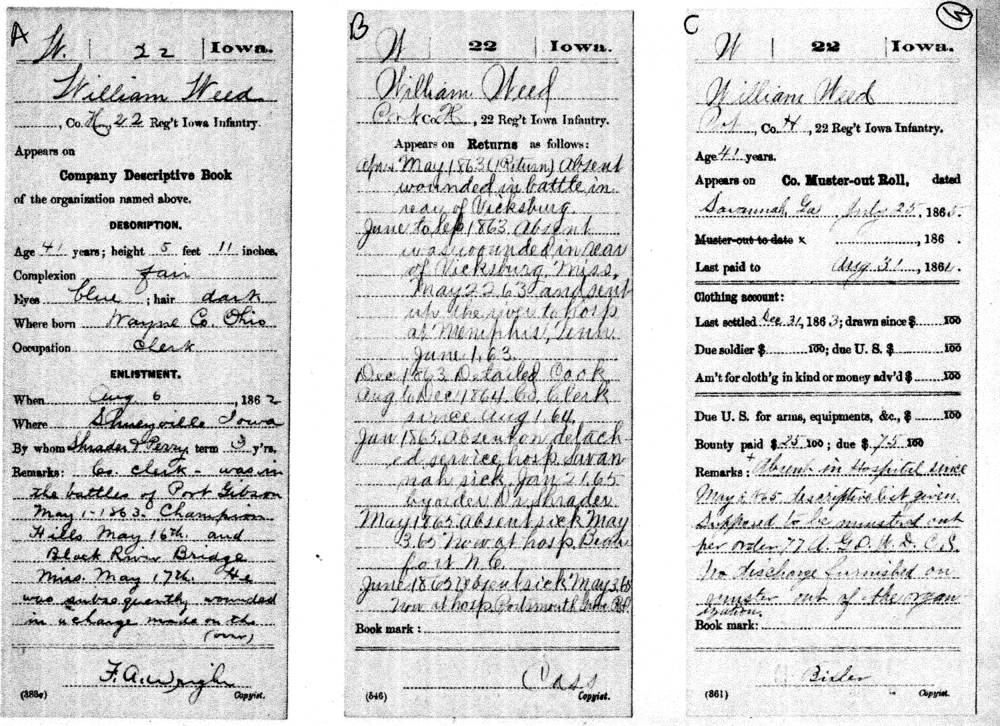 A
W. | 22 | Iowa.
William Weed
, Co. H, 22 Reg't Iowa Infantry.
Appears on
Company Descriptive Book
of the organization named above.
DESCRIPTION.
Age 41 years; height 5 feet 11 inches.
Complexion fair
Eyes blue ; hair dark
Where born Wayne Co. Ohio
Occupation Clerk
ENLISTMENT.
When Aug 6 , 1862
Where Shueyville Iowa
By whom Shrader & Perry term 3 y'rs.
Remarks: Co. clerk - was in
the battles of Port Gibson
May 1-1863. Champion
Hills May 16th. and
Black River Bridge
Miss. May 17th. He
was subsequently wounded
in a charge made on the
(over)
F. A. Wright
(383e) Copyist.
B
W | 22 | Iowa.
William Weed
Co. H, 22 Reg't Iowa Infantry.
Appears on Returns as follows:
May 1863 (Return) Absent
wounded in battle in
rear of Vicksburg.
June to Sep 1863. Absent
was wounded in rear
of Vicksburg, Miss.
May 22 63 and sent
up the river to hosp
at Memphis, Tenn
June 1, 63.
Dec 1863 Detailed Cook
Aug to Dec 1864 Co. Clerk
since Aug 1. 64.
Jan 1865. absent on detach-
ed service hosp. Savan
nah sick Jan 21, 65
by order Dr. Shrader.
May 1865 absent sick May
3. 65 Now at hosp. Beau
fort N.C.
June 1865 Absent sick May 3, 65
Now at hosp Portsmouth Grove R.I.
Book mark:
Cass
(546) Copyist.
C
W | 22 | Iowa.
William Weed
, Co. H, 22 Reg't Iowa Infantry.
Age 41 years.
Appears on Co. Muster-out Roll, dated
Savannah Ga July 25, 1865.
Muster-out to date x , 186 .
Last paid to Aug 31, 1864.
Clothing account:
Last settled Dec 31, 1863; drawn since $ 100
Due soldier $ 100; due U. S. $ 100
Am't for cloth'g in kind or money adv'd $ 100
Due U. S. for arms, equipments, &c., $ 100
Bounty paid $ 25 100; due $ 75 100
Remarks: Absent in Hospital since
May descriptive list given
Supposed to be mustered out
per order 77 A. G. O. W. D. C. S.
No discharge furnished on
muster out of the organ
ization.
Book mark:
Bixler
(861) Copyist.